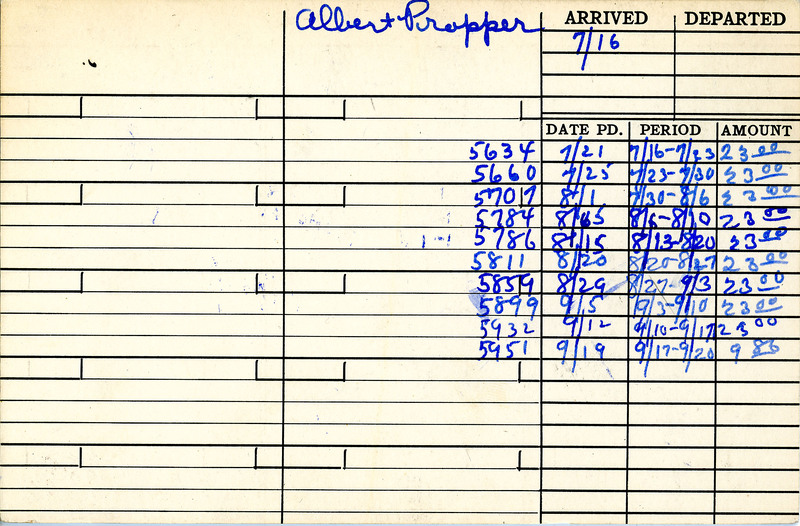 Albert Propper ARRIVED DEPARTED
7/16
DATE PD. PERIOD AMOUNT
5634 7/21 7/16-7/23 23 00
5660 7/25 7/23-7/30 23 00
5701 8/1 7/30-8/6 23 00
5784 8/15 8/6-8/20 23 00
5786 8/15 8/13-8/20 23 00
5811 8/20 8/20-8/27 23 00
5859 8/29 8/27-9/3 23 00
5899 9/5 9/3-9/10 23 00
5932 9/12 9/10-9/17 23 00
5951 9/19 9/17-9/20 9 86